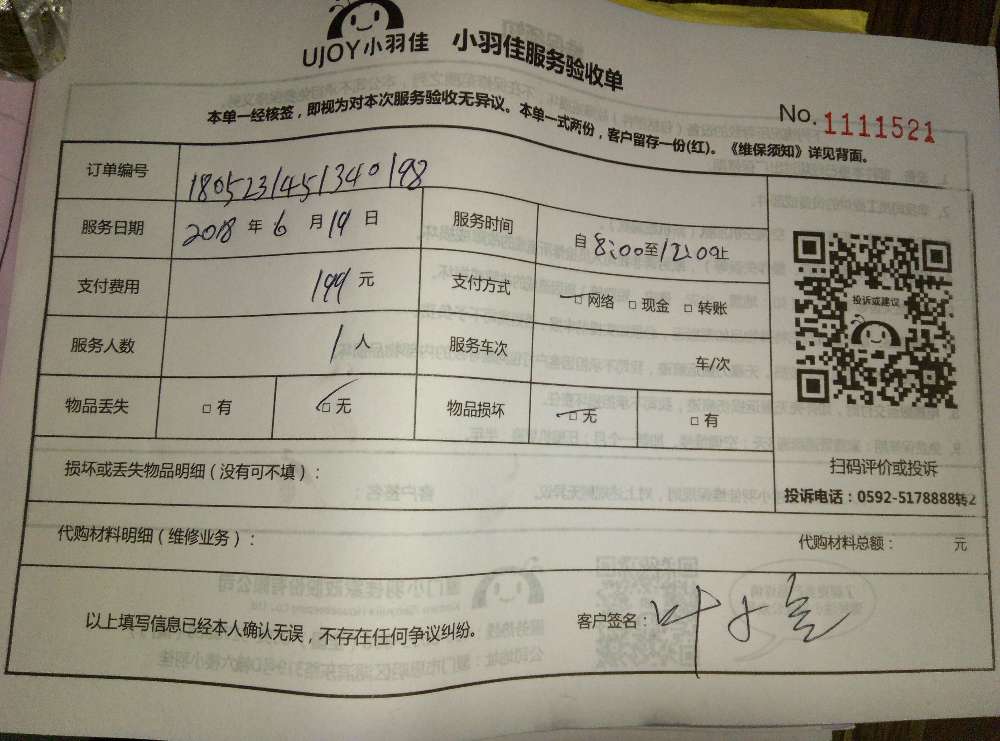 UJOY小羽佳 小羽佳服务验收单
No. 1111521
本单一经核签，即视为对本次服务验收无异议。本单一式两份，客户留存一份(红)。《维保须知》详见背面。
订单编号 1805231451340198
服务日期 2018 年 6 月 19 日 服务时间 自 8:00 至 12:00 止
支付费用 199 元 支付方式 □ 网络 □ 现金 □ 转账
服务人数 1 人 服务车次 车/次
物品丢失 □ 有 □ 无 物品损坏 □ 无 □ 有
投诉或建议
扫码评价或投诉
投诉电话：0592-5178888转2
损坏或丢失物品明细（没有可不填）：
代购材料明细（维修业务）： 代购材料总额： 元
以上填写信息已经本人确认无误，不存在任何争议纠纷。 客户签名：叶